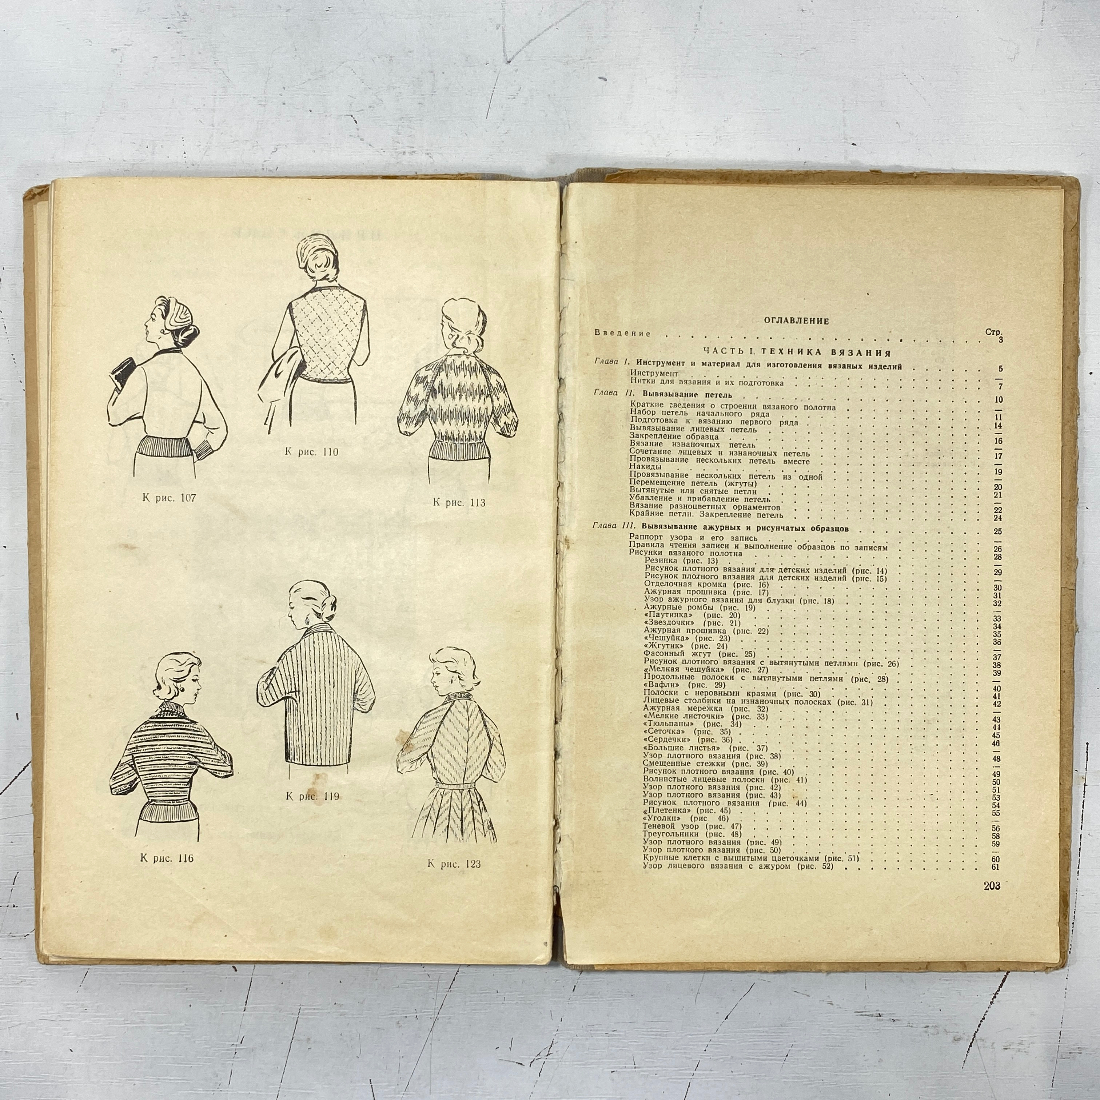 К рис. 107
К рис. 110
К рис. 113
К рис. 116
К рис. 119
К рис. 123
ОГЛАВЛЕНИЕ
Стр.
Введение 3
ЧАСТЬ I. ТЕХНИКА ВЯЗАНИЯ
Глава I. Инструмент и материал для изготовления вязаных изделий 5
Инструмент —
Нитки для вязания и их подготовка 7
Глава II. Вывязывание петель 10
Краткие сведения о строении вязаного полотна —
Набор петель начального ряда 11
Подготовка к вязанию первого ряда 14
Вывязывание лицевых петель —
Закрепление образца 16
Вязание изнаночных петель —
Сочетание лицевых и изнаночных петель 17
Провязывание нескольких петель вместе —
Накиды 19
Провязывание нескольких петель из одной —
Перемещение петель (жгуты) 20
Вытянутые или снятые петли 21
Убавление и прибавление петель —
Вязание разноцветных орнаментов 22
Крайние петли. Закрепление петель 24
Глава III. Вывязывание ажурных и рисунчатых образцов 25
Раппорт узора и его запись —
Правила чтения записи и выполнение образцов по записям 26
Рисунки вязаного полотна 28
Резинка (рис. 13) —
Рисунок плотного вязания для детских изделий (рис. 14) 29
Рисунок плотного вязания для детских изделий (рис. 15) —
Отделочная кромка (рис. 16) 30
Ажурная прошивка (рис. 17) 31
Узор ажурного вязания для блузки (рис. 18) 32
Ажурные ромбы (рис. 19) —
«Паутинка» (рис. 20) 33
«Звездочки» (рис. 21) 34
Ажурная прошивка (рис. 22) 34
«Чешуйка» (рис. 23) 35
«Жгутик» (рис. 24) 36
Фасонный жгут (рис. 25) —
Рисунок плотного вязания с вытянутыми петлями (рис. 26) 37
«Мелкая чешуйка» (рис. 27) 38
Продольные полоски с вытянутыми петлями (рис. 28) 39
«Вафли» (рис. 29) —
Полоски с неровными краями (рис. 30) 40
Лицевые столбики на изнаночных полосках (рис. 31) 41
Ажурная мережка (рис. 32) 42
«Мелкие листочки» (рис. 33) —
«Тюльпаны» (рис. 34) 43
«Сеточка» (рис. 35) 44
«Сердечки» (рис. 36) 45
«Большие листья» (рис. 37) 46
Узор плотного вязания (рис. 38) —
Смешенные стежки (рис. 39) 48
Рисунок плотного вязания (рис. 40) —
Волнистые лицевые полоски (рис. 41) 49
Узор плотного вязания (рис. 42) 50
Узор плотного вязания (рис. 43) 51
Рисунок плотного вязания (рис. 44) 53
«Плетенка» (рис. 45) 54
«Уголки» (рис 46) 55
Теневой узор (рис. 47) —
Треугольники (рис. 48) 56
Узор плотного вязания (рис. 49) 58
Узор плотного вязания (рис. 50) 59
Крупные клетки с вышитыми цветочками (рис. 51) 60
Узор лицевого вязания с ажуром (рис. 52) 61
203